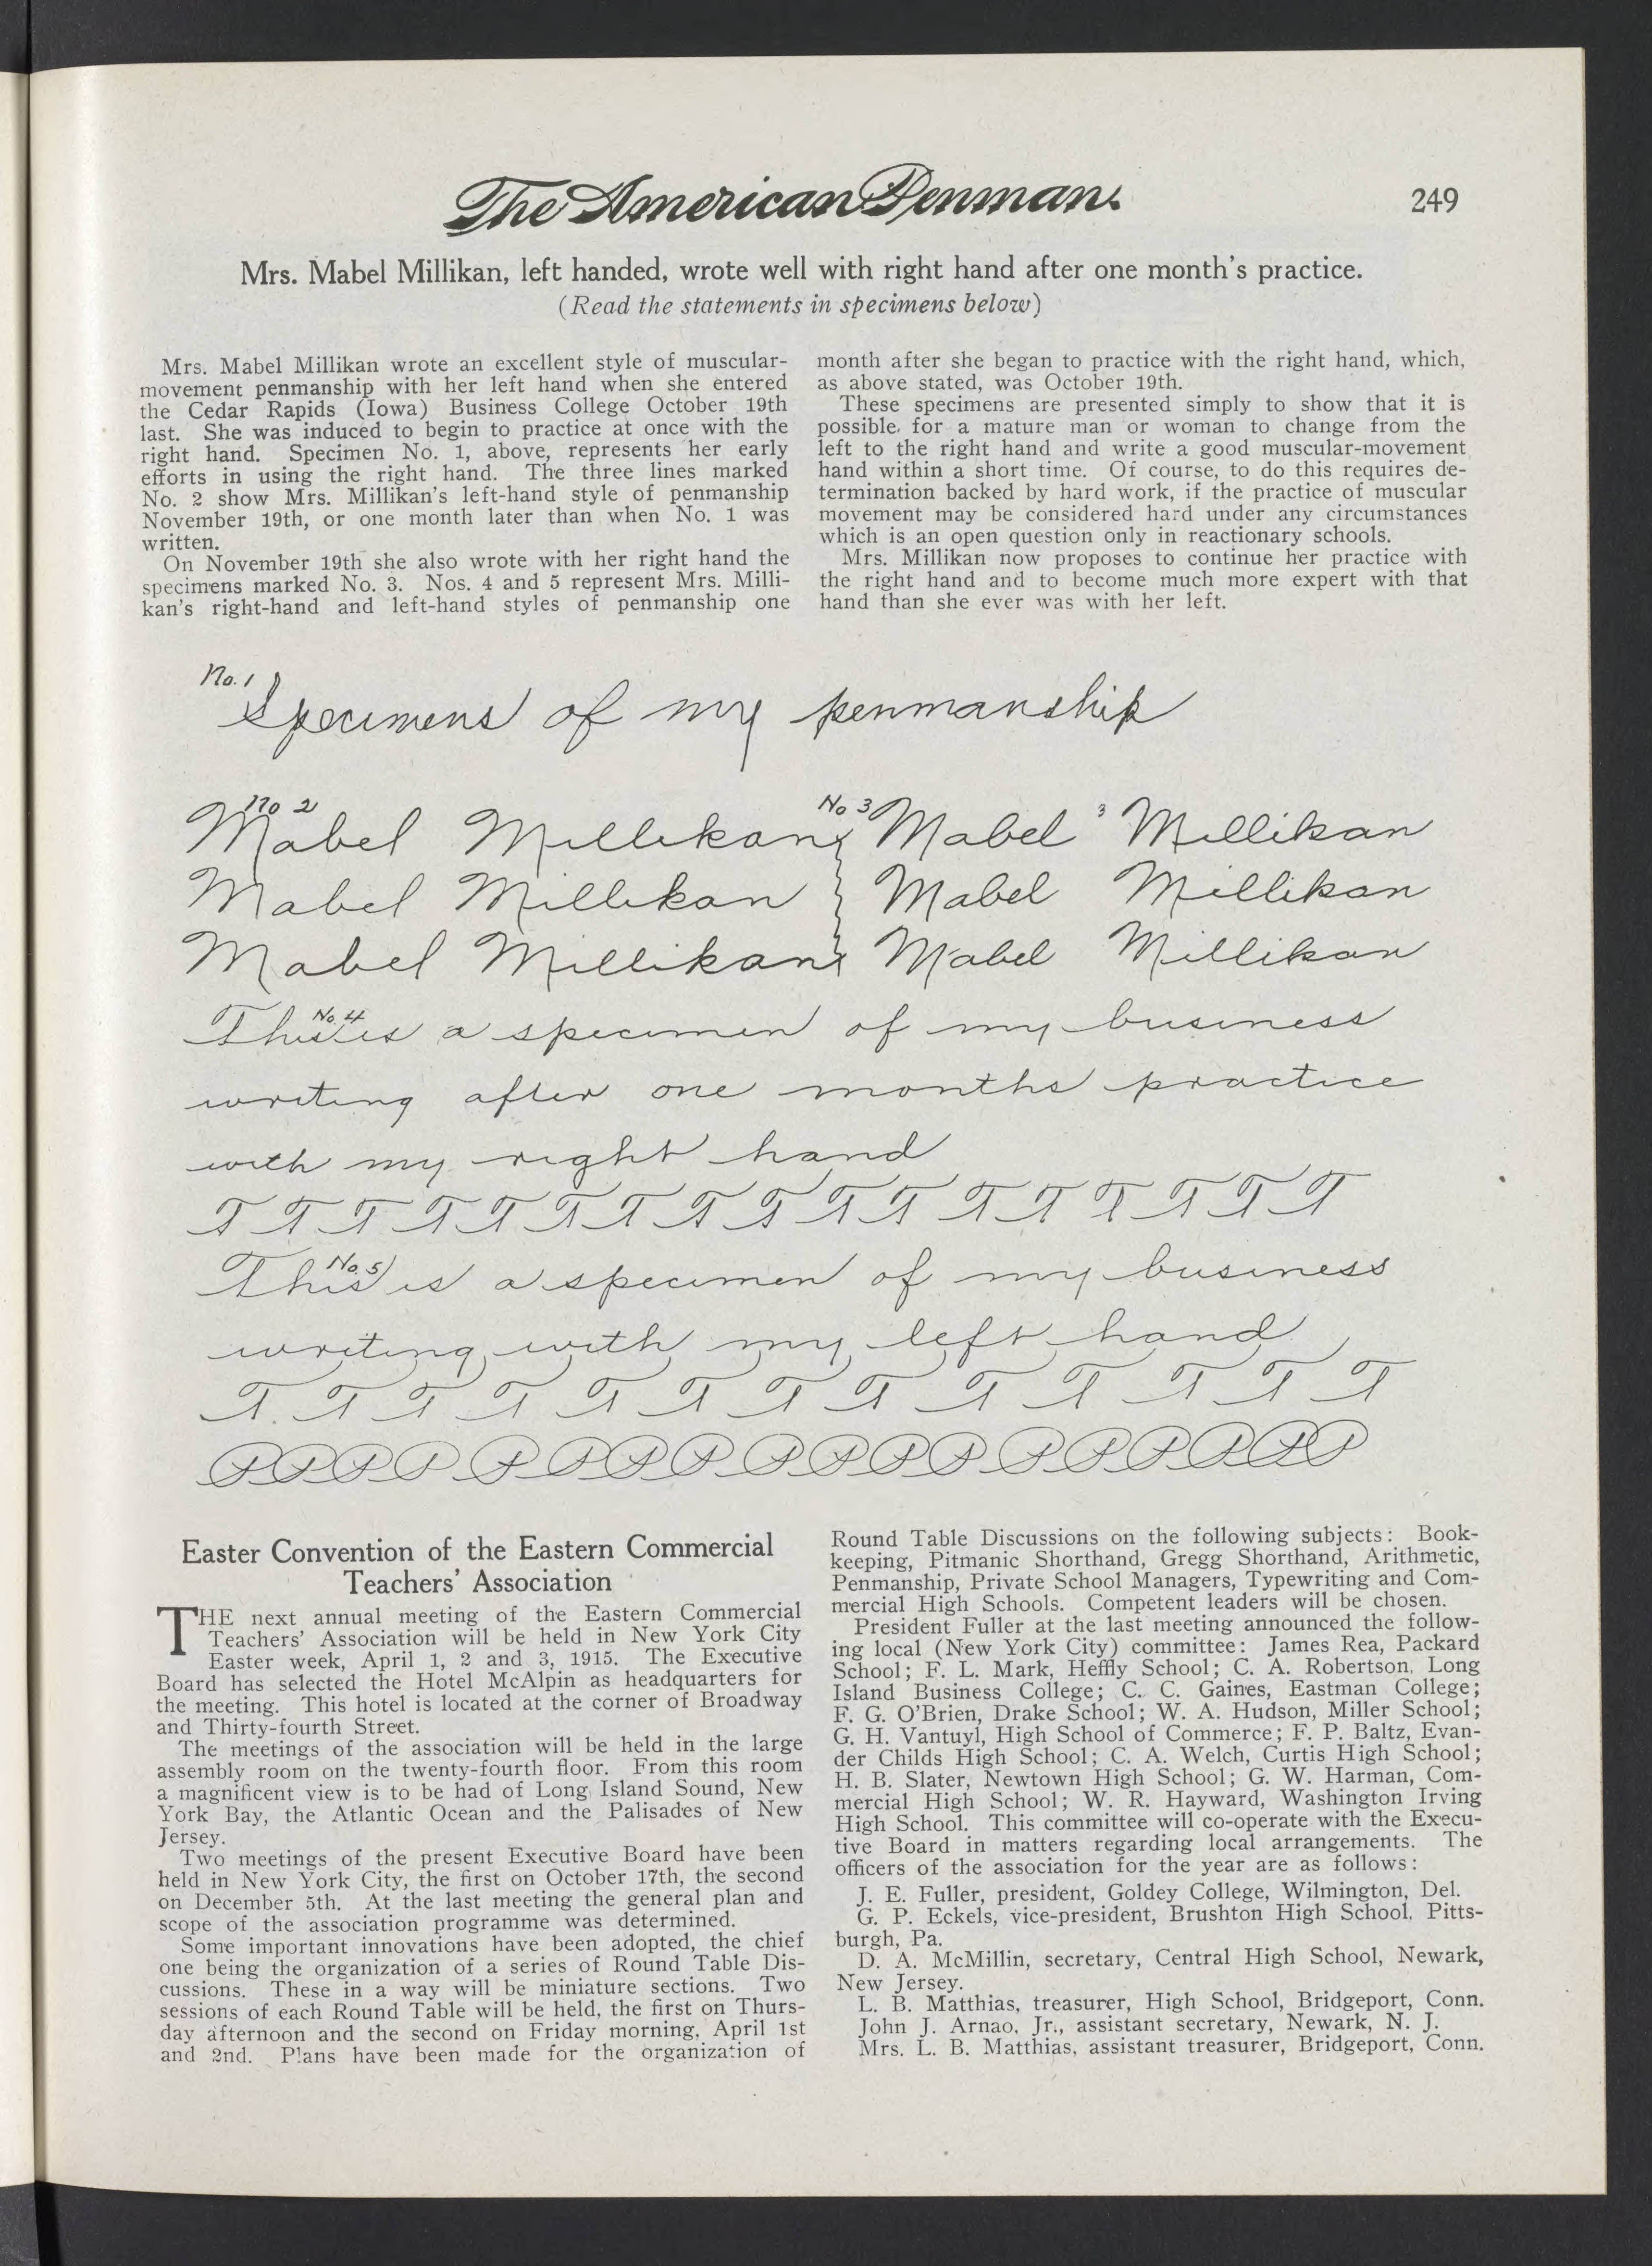 The American Penman
249
Mrs. Mabel Millikan, left handed, wrote well with right hand after one month's practice.
(Read the statements in specimens below)
Mrs. Mabel Millikan wrote an excellent style of muscular-
movement penmanship with her left hand when she entered
the Cedar Rapids (Iowa) Business College October 19th
last. She was induced to begin to practice at once with the
right hand. Specimen No. 1, above, represents her early
efforts in using the right hand. The three lines marked
No. 2 show Mrs. Millikan's left-hand style of penmanship
November 19th, or one month later than when No. 1 was
written.
On November 19th she also wrote with her right hand the
specimens marked No. 3. Nos. 4 and 5 represent Mrs. Milli-
kan's right-hand and left-hand styles of penmanship one
month after she began to practice with the right hand, which,
as above stated, was October 19th.
These specimens are presented simply to show that it is
possible for a mature man or woman to change from the
left to the right hand and write a good muscular-movement
hand within a short time. Of course, to do this requires de-
termination backed by hard work, if the practice of muscular
movement may be considered hard under any circumstances
which is an open question only in reactionary schools.
Mrs. Millikan now proposes to continue her practice with
the right hand and to become much more expert with that
hand than she ever was with her left.
No. 1
Specimens of my penmanship
No 2 No 3 3
Mabel Millikan Mabel Millikan
Mabel Millikan Mabel Millikan
Mabel Millikan Mabel Millikan
No. 4
This is a specimen of my business
writing after one months practice
with my right hand
T T T T T T T T T T T T T T T T T
No. 5
This is a specimen of my business
writing with my left hand
T T T T T T T T T T T T T
P P P P P P P P P P P P P P P P P P
Easter Convention of the Eastern Commercial
Teachers' Association
THE next annual meeting of the Eastern Commercial
Teachers' Association will be held in New York City
Easter week, April 1, 2 and 3, 1915. The Executive
Board has selected the Hotel McAlpin as headquarters for
the meeting. This hotel is located at the corner of Broadway
and Thirty-fourth Street.
The meetings of the association will be held in the large
assembly room on the twenty-fourth floor. From this room
a magnificent view is to be had of Long Island Sound, New
York Bay, the Atlantic Ocean and the Palisades of New
Jersey.
Two meetings of the present Executive Board have been
held in New York City, the first on October 17th, the second
on December 5th. At the last meeting the general plan and
scope of the association programme was determined.
Some important innovations have been adopted, the chief
one being the organization of a series of Round Table Dis-
cussions. These in a way will be miniature sections. Two
sessions of each Round Table will be held, the first on Thurs-
day afternoon and the second on Friday morning, April 1st
and 2nd. Plans have been made for the organization of
Round Table Discussions on the following subjects: Book-
keeping, Pitmanic Shorthand, Gregg Shorthand, Arithmetic,
Penmanship, Private School Managers, Typewriting and Com-
mercial High Schools. Competent leaders will be chosen.
President Fuller at the last meeting announced the follow-
ing local (New York City) committee: James Rea, Packard
School; F. L. Mark, Heffly School; C. A. Robertson, Long
Island Business College; C. C. Gaines, Eastman College;
F. G. O'Brien, Drake School; W. A. Hudson, Miller School;
G. H. Vantuyl, High School of Commerce; F. P. Baltz, Evan-
der Childs High School; C. A. Welch, Curtis High School;
H. B. Slater, Newtown High School; G. W. Harman, Com-
mercial High School; W. R. Hayward, Washington Irving
High School. This committee will co-operate with the Execu-
tive Board in matters regarding local arrangements. The
officers of the association for the year are as follows:
J. E. Fuller, president, Goldey College, Wilmington, Del.
G. P. Eckels, vice-president, Brushton High School, Pitts-
burgh, Pa.
D. A. McMillin, secretary, Central High School, Newark,
New Jersey.
L. B. Matthias, treasurer, High School, Bridgeport, Conn.
John J. Arnao, Jr., assistant secretary, Newark, N. J.
Mrs. L. B. Matthias, assistant treasurer, Bridgeport, Conn.